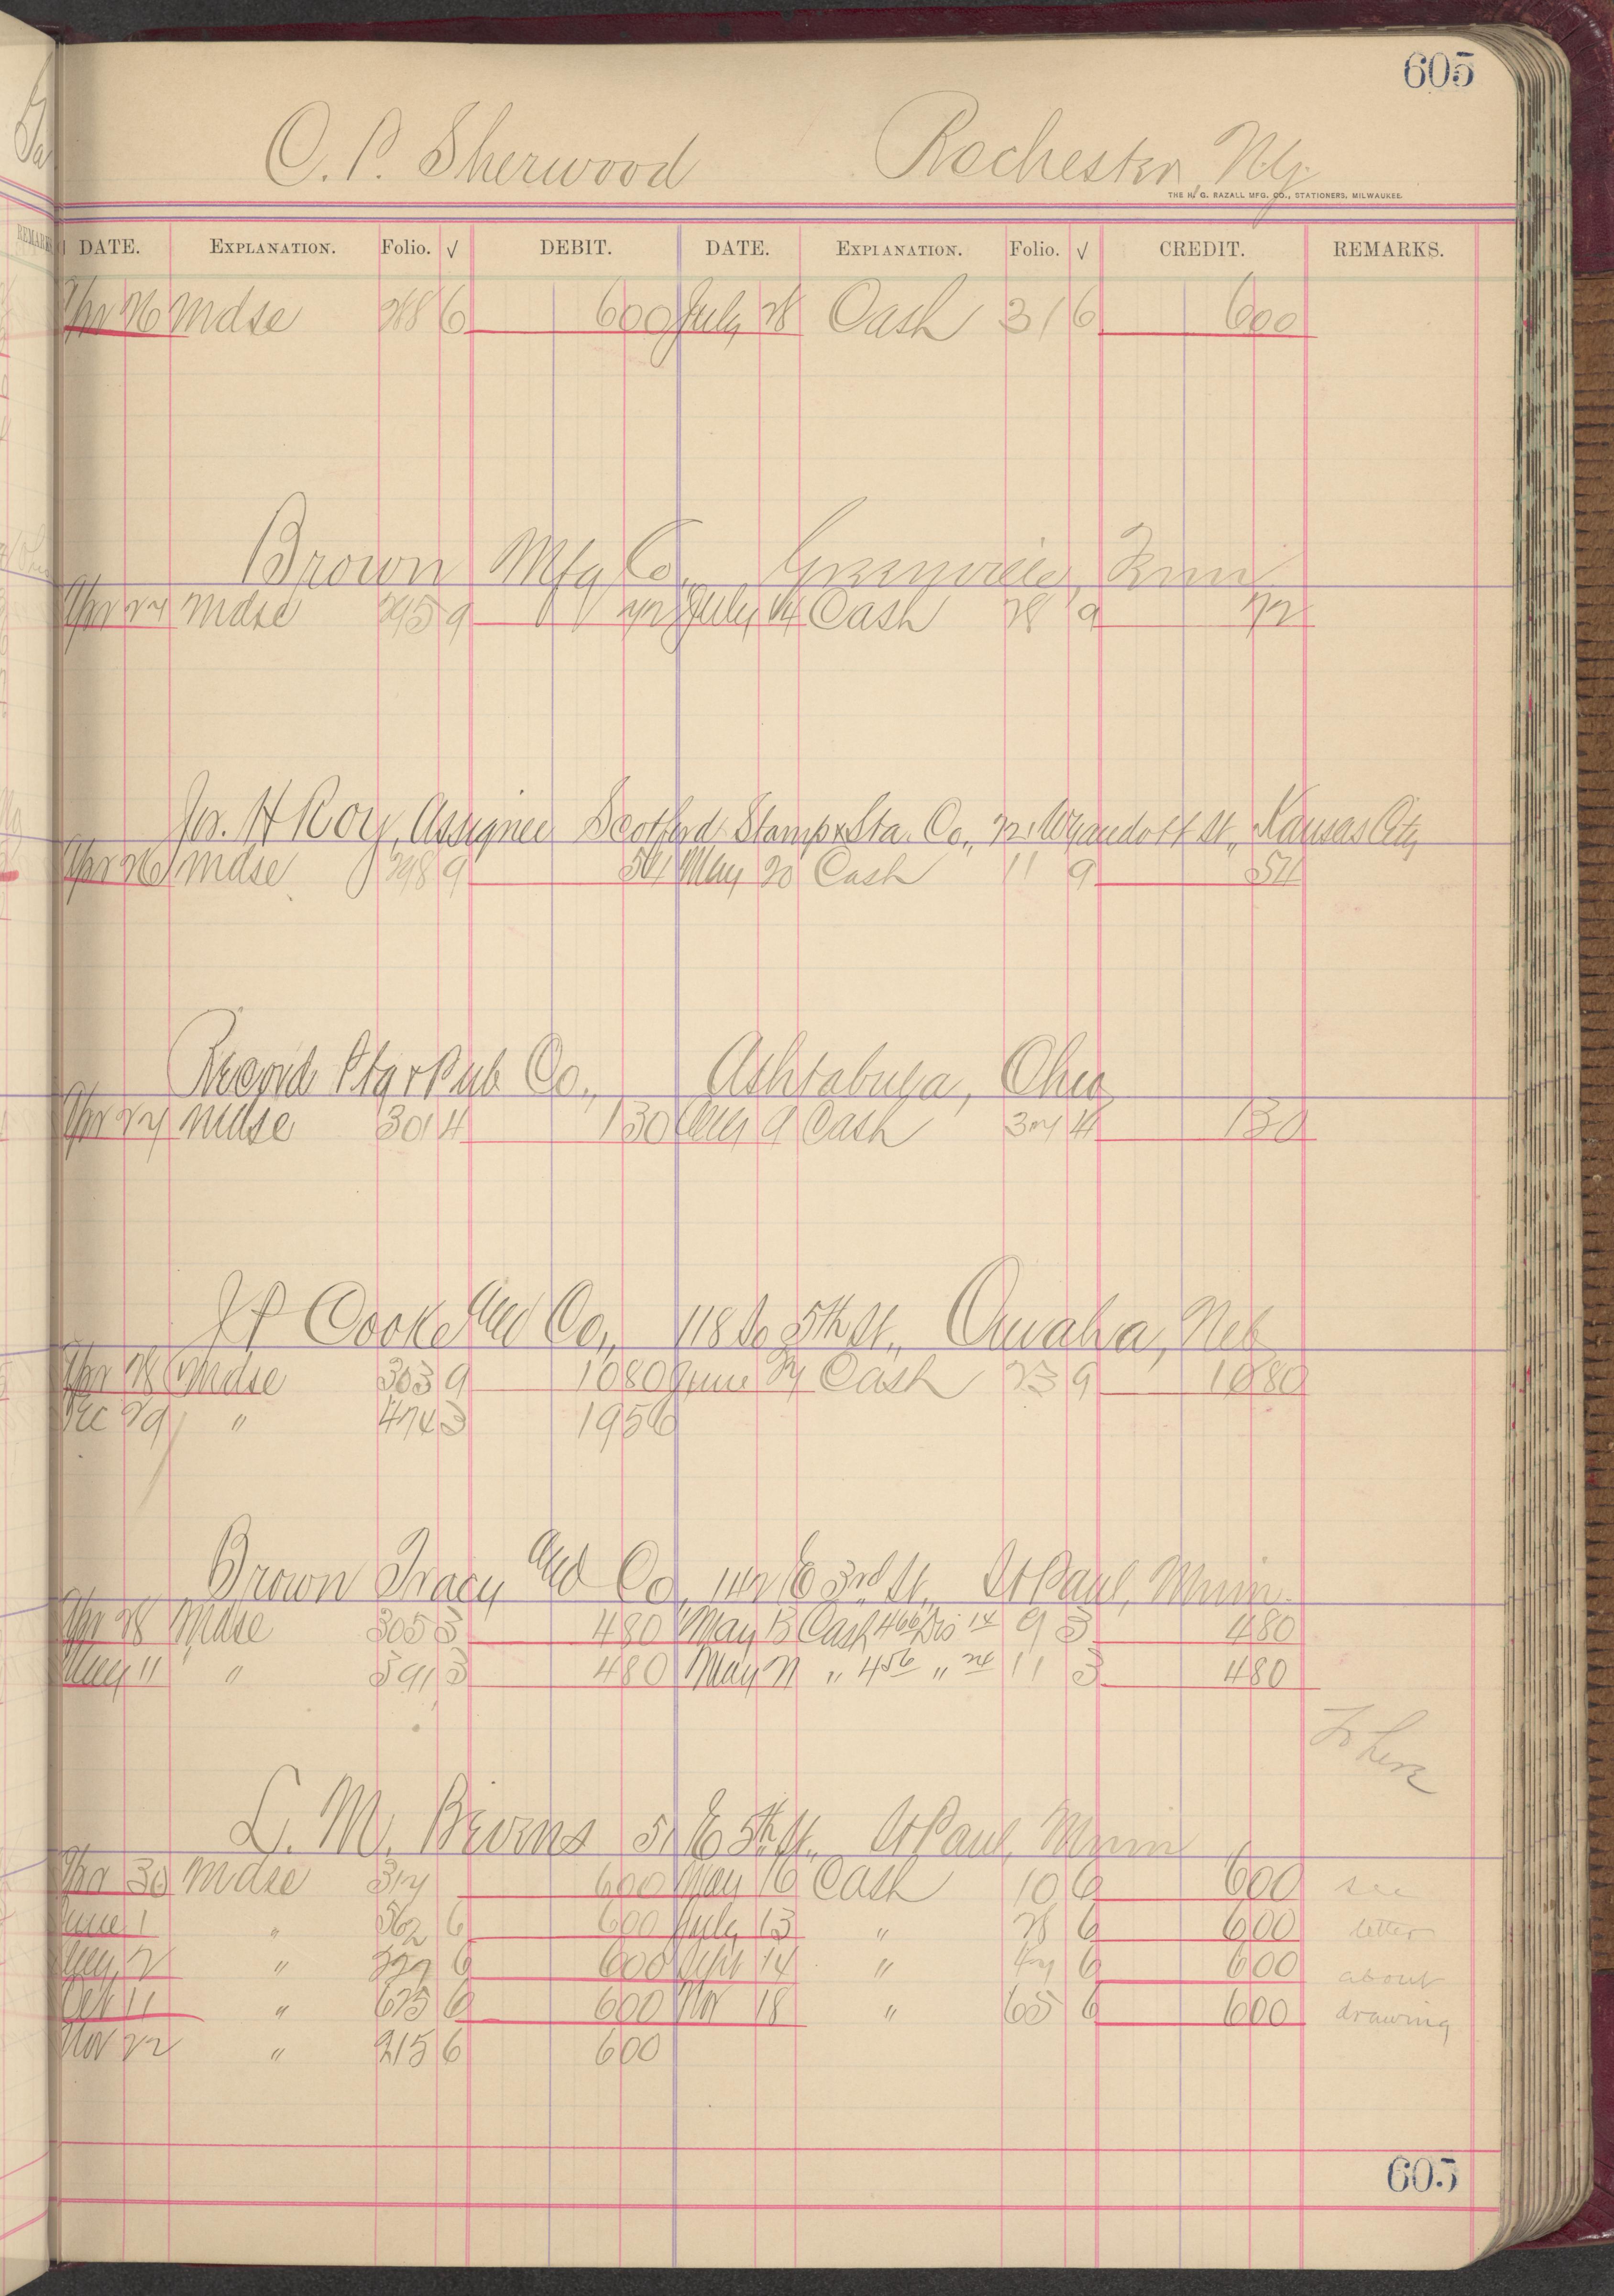 605
O. P. Sherwood Rochester, N.Y.
THE H. G. RAZALL MFG. CO., STATIONERS, MILWAUKEE.
DATE. EXPLANATION. Folio. √ DEBIT. DATE. EXPLANATION. Folio. √ CREDIT. REMARKS.
Apr 26 Mdse 288 6 600 July 28 Cash 31 6 600
Brown Mfg Co., Greenville, Tenn
Apr 27 Mdse 295 9 72 July 14 Cash 28 9 72
Jas. H Roy, Assignee Scotford Stamp & Sta. Co., Wyandott St., Kansas City
Apr 26 Mdse 298 9 54 May 20 Cash 11 9 54
Record Pub Co., Ashtabula, Ohio
Apr 27 Mdse 301 4 130 Aug 9 Cash 37 4 130
J P Cooke and Co., 118 So 5th St., Omaha, Neb
Apr 28 Mdse 303 9 1080 June 24 Cash 23 9 1080
Dec 29 " 474 3 1956
Brown Tracy and Co., 142 E 3rd St., St Paul, Minn.
Apr 28 Mdse 305 3 480 May 13 Cash 466 Dis 14 9 3 480
May 11 " 391 3 480 May 21 " 456 " 24 11 3 480
L. M. Bevens 51 E 5th St., St Paul, Minn
Apr 30 Mdse 317 600 May 16 Cash 10 6 600 see
June 1 " 562 6 600 July 13 " 28 6 600 letter
2 " 6 600 Sept 14 " 47 6 600 about
Oct 11 " 675 6 600 Nov 18 " 65 6 600 drawing
Nov 22 " 215 6 600
605